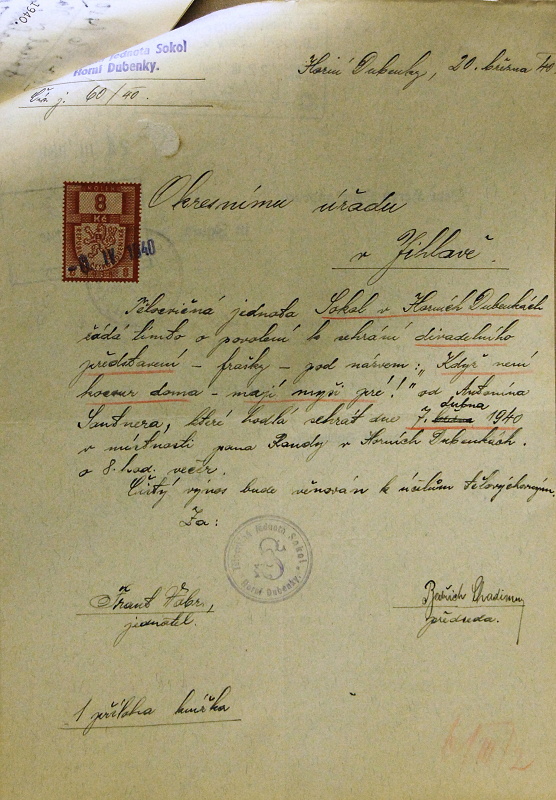 1940.
jednota Sokol
Horní Dubenky.
Čís. j. 60/40.
Horní Dubenky, 20. března 40
KOLEK
8
Kč
8
- 8. IV. 1940
Okresnímu úřadu
v Jihlavě.
Tělocvičná jednota Sokol v Horních Dubenkách
žádá tímto o povolení k sehrání divadelního
představení - frašky - pod názvem: „Když není
kocour doma - mají myši pré!" od Antonína
Santnera, které hodlá sehrát dne 7. dubna 1940
v místnosti pana Randy v Horních Dubenkách.
o 8. hod. večer.
Čistý výnos bude věnován k účelům tělovýchovným
Za:
Tělocvičná jednota Sokol
Horní Dubenky.
Frant.
jednatel.
Bedřich
předseda.
1 příloha knížka